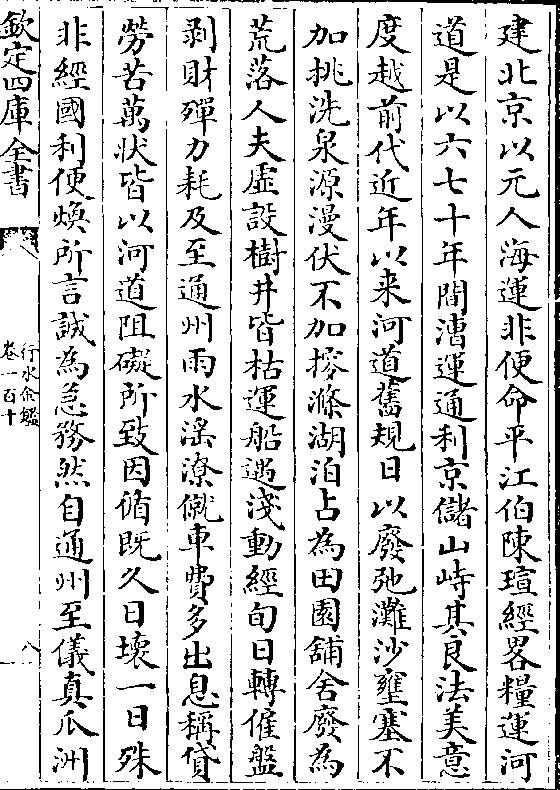 建北京以元人海運非便命平江伯陳瑄經畧糧運河
道是以六七十年間漕運通利京儲山峙其良法美意
度越前代近年以来河道舊規日以廢弛灘沙壅塞不
加挑洗泉源漫伏不加搜滌湖泊占為田園舖舍廢為
荒落人夫虛設樹井皆枯運船遇淺動經旬日轉僱盤
剥財殫力耗及至通州雨水淫潦僦車費多出息稱貸
勞苦萬狀皆以河道阻礙所致因循既久日壞一日殊
非經國利便煥所言誠為急務然自通州至儀真瓜洲
欽定四庫全書
行水金鑑
卷一百十
八